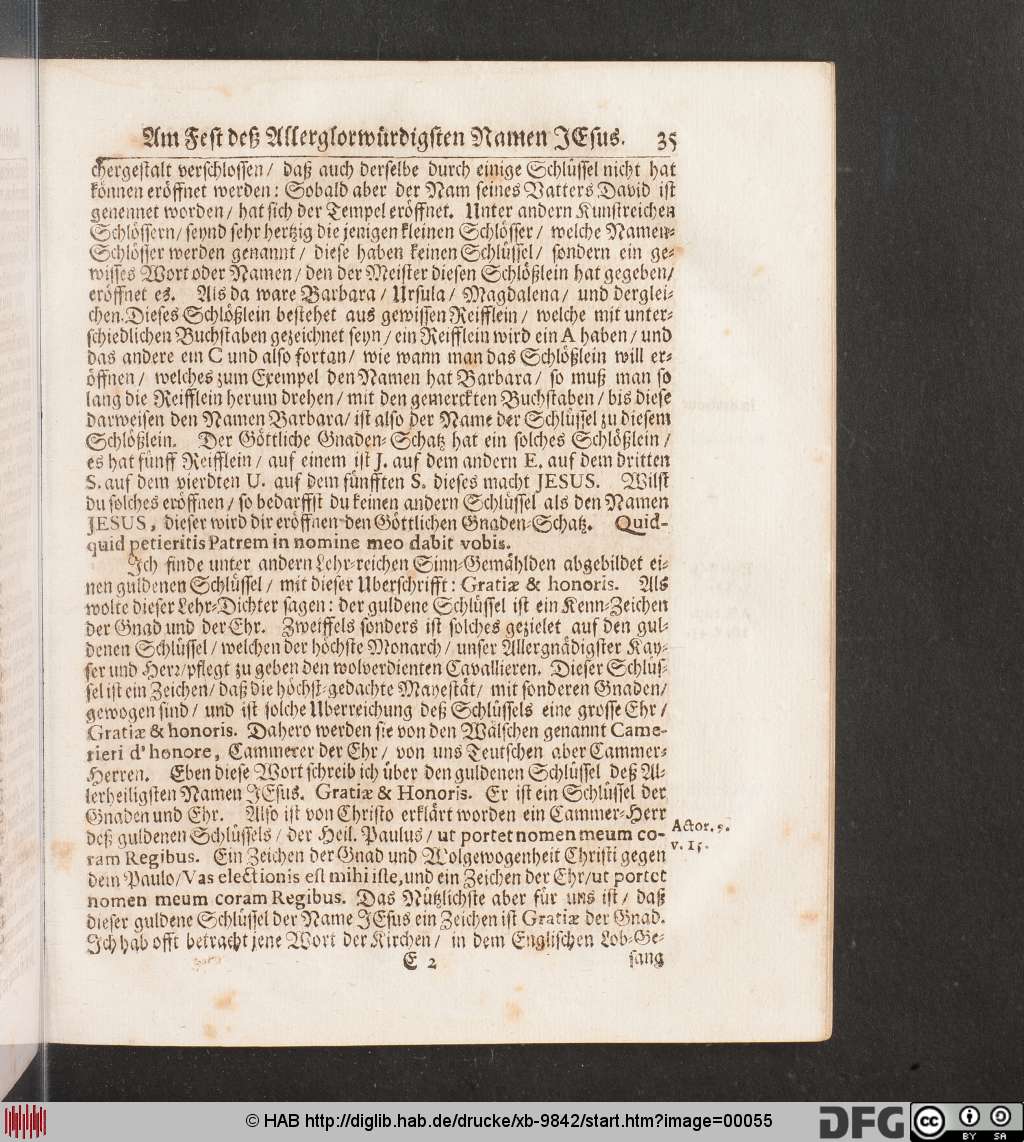 Am Fest deß Allerglorwürdigsten Namen JEsus. 35
chergestalt verschlossen / daß auch derselbe durch einige Schlüssel nicht hat
können eröffnet werden: Sobald aber der Nam seines Vatters David ist
genennet worden / hat sich der Tempel eröffnet. Unter andern Kunstreichen
Schlössern / seynd sehr hertzig die jenigen kleinen Schlösser / welche Namen-
Schlösser werden genannt / diese haben keinen Schlüssel / sondern ein ge-
wisses Wort oder Namen / den der Meister diesen Schlößlein hat gegeben /
eröffnet es. Als da ware Barbara / Ursula / Magdalena / und derglei-
chen. Dieses Schlößlein bestehet aus gewissen Reifflein / welche mit unter-
schiedlichen Buchstaben gezeichnet seyn / ein Reifflein wird ein A haben / und
das andere ein C und also fortan / wie wann man das Schlößlein will er-
öffnen / welches zum Exempel den Namen hat Barbara / so muß man so
lang die Reifflein herum drehen / mit den gemerckten Buchstaben / bis diese
darweisen den Namen Barbara / ist also der Name der Schlüssel zu diesem
Schlößlein. Der Göttliche Gnaden-Schatz hat ein solches Schlößlein /
es hat fünff Reifflein / auf einem ist J. auf dem andern E. auf dem dritten
S. auf dem vierdten U. auf dem fünfften S. dieses macht JESUS. Wilst
du solches eröffnen / so bedarffst du keinen andern Schlüssel als den Namen
JESUS, dieser wird dir eröffnen den Göttlichen Gnaden-Schatz. Quid-
quid petieritis Patrem in nomine meo dabit vobis.
Ich finde unter andern Lehr-reichen Sinn-Gemählden abgebildet ei-
nen guldenen Schlüssel / mit dieser Uberschrifft: Gratiæ & honoris. Als
wolte dieser Lehr-Dichter sagen: der guldene Schlüssel ist ein Kenn-Zeichen
der Gnad und der Ehr. Zweiffels sonders ist solches gezielet auf den gul-
denen Schlüssel / welchen der höchste Monarch / unser Allergnädigster Kay-
ser und Herr / pflegt zu geben den wolverdienten Cavallieren. Dieser Schlüs-
sel ist ein Zeichen / daß die höchst-gedachte Mayestät / mit sonderen Gnaden /
gewogen sind / und ist solche Uberreichung deß Schlüssels eine grosse Ehr /
Gratiæ & honoris. Dahero werden sie von den Wälschen genannt Came-
rieri d'honore, Cammerer der Ehr / von uns Teutschen aber Cammer-
Herren. Eben diese Wort schreib ich über den guldenen Schlüssel deß Al-
lerheiligsten Namen JEsus. Gratiæ & Honoris. Er ist ein Schlüssel der
Gnaden und Ehr. Also ist von Christo erklärt worden ein Cammer-Herr
deß guldenen Schlüssels / der Heil. Paulus / ut portet nomen meum co-
ram Regibus. Ein Zeichen der Gnad und Wolgewogenheit Christi gegen
dem Paulo / Vas electionis est mihi iste, und ein Zeichen der Ehr / ut portet
nomen meum coram Regibus. Das Nützlichste aber für uns ist / daß
dieser guldene Schlüssel der Name JEsus ein Zeichen ist Gratiæ der Gnad.
Ich hab offt betracht jene Wort der Kirchen / in dem Englischen Lob-Ge-
Actor. 9.
v. 15.
E 2 sang
© HAB http://diglib.hab.de/drucke/xb-9842/start.htm?image=00055
DFG
cc BY SA